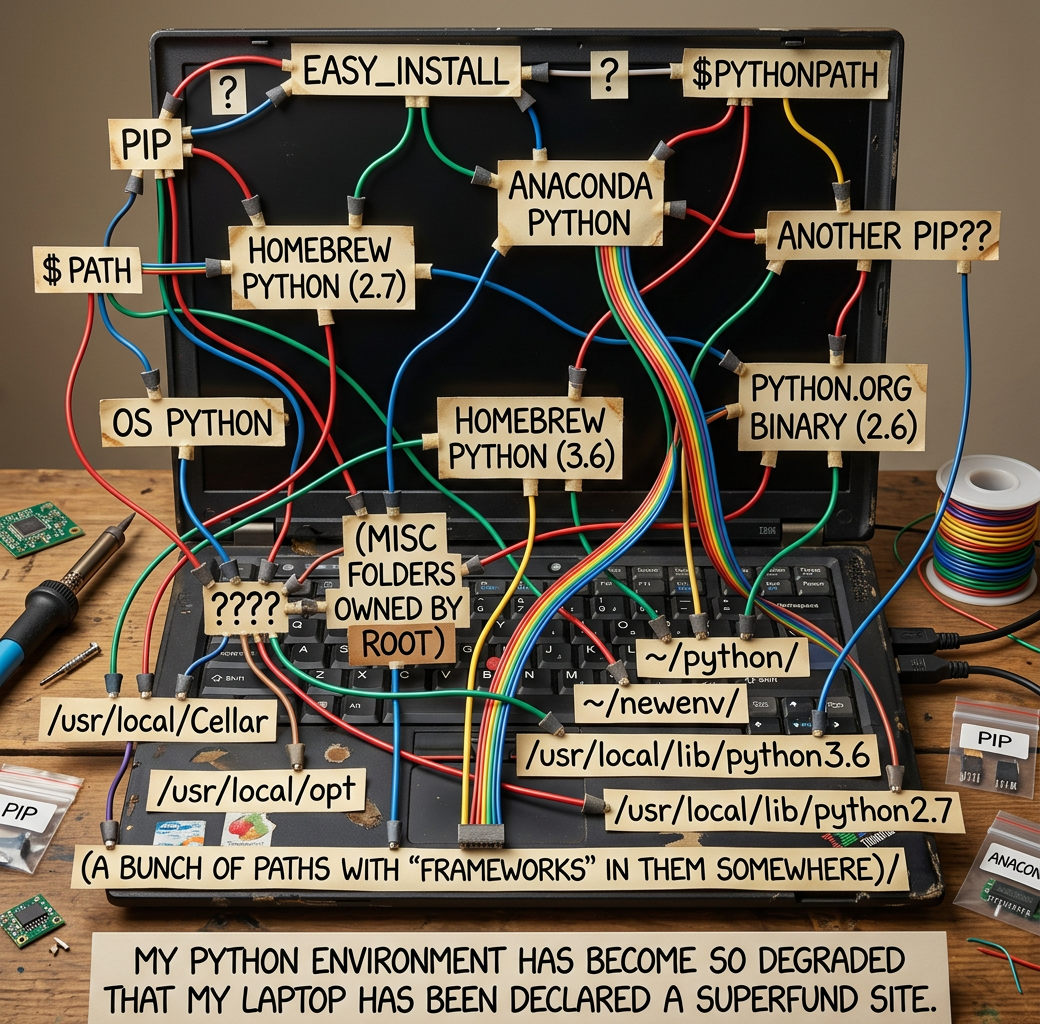 EASY_INSTALL
?
$PYTHONPATH
?
PIP
ANACONDA
PYTHON
ANOTHER PIP??
HOMEBREW
PYTHON (2.7)
$ PATH
PYTHON.ORG
BINARY (2.6)
OS PYTHON
HOMEBREW
PYTHON (3.6)
(MISC
FOLDERS
OWNED BY
ROOT)
IBM
????
~/python/
~/newenv/
/usr/local/Cellar
/usr/local/lib/python3.6
PIP
/usr/local/opt
/usr/local/lib/python2.7
PIP
(A BUNCH OF PATHS WITH “FRAMEWORKS” IN THEM SOMEWHERE)/
ANACON
MY PYTHON ENVIRONMENT HAS BECOME SO DEGRADED
THAT MY LAPTOP HAS BEEN DECLARED A SUPERFUND SITE.